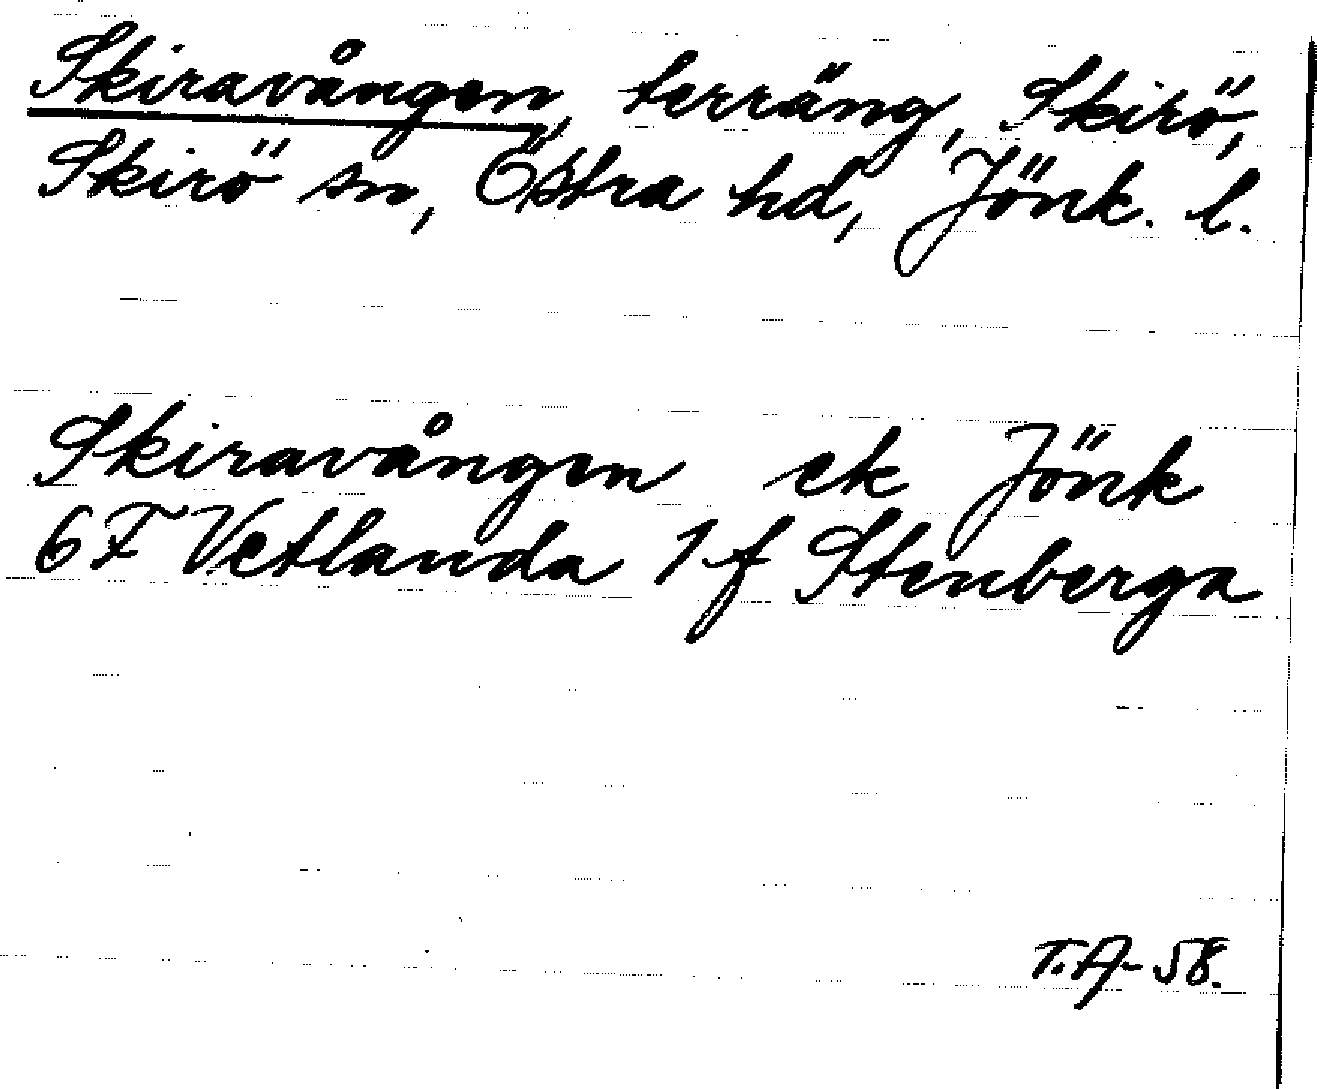 Skiravången, terräng, Skirö,
Skirö sn, Östra hd, Jönk. l.
Skiravången ek Jönk
6F Vetlanda 1 f Stenberga
T.A-58.